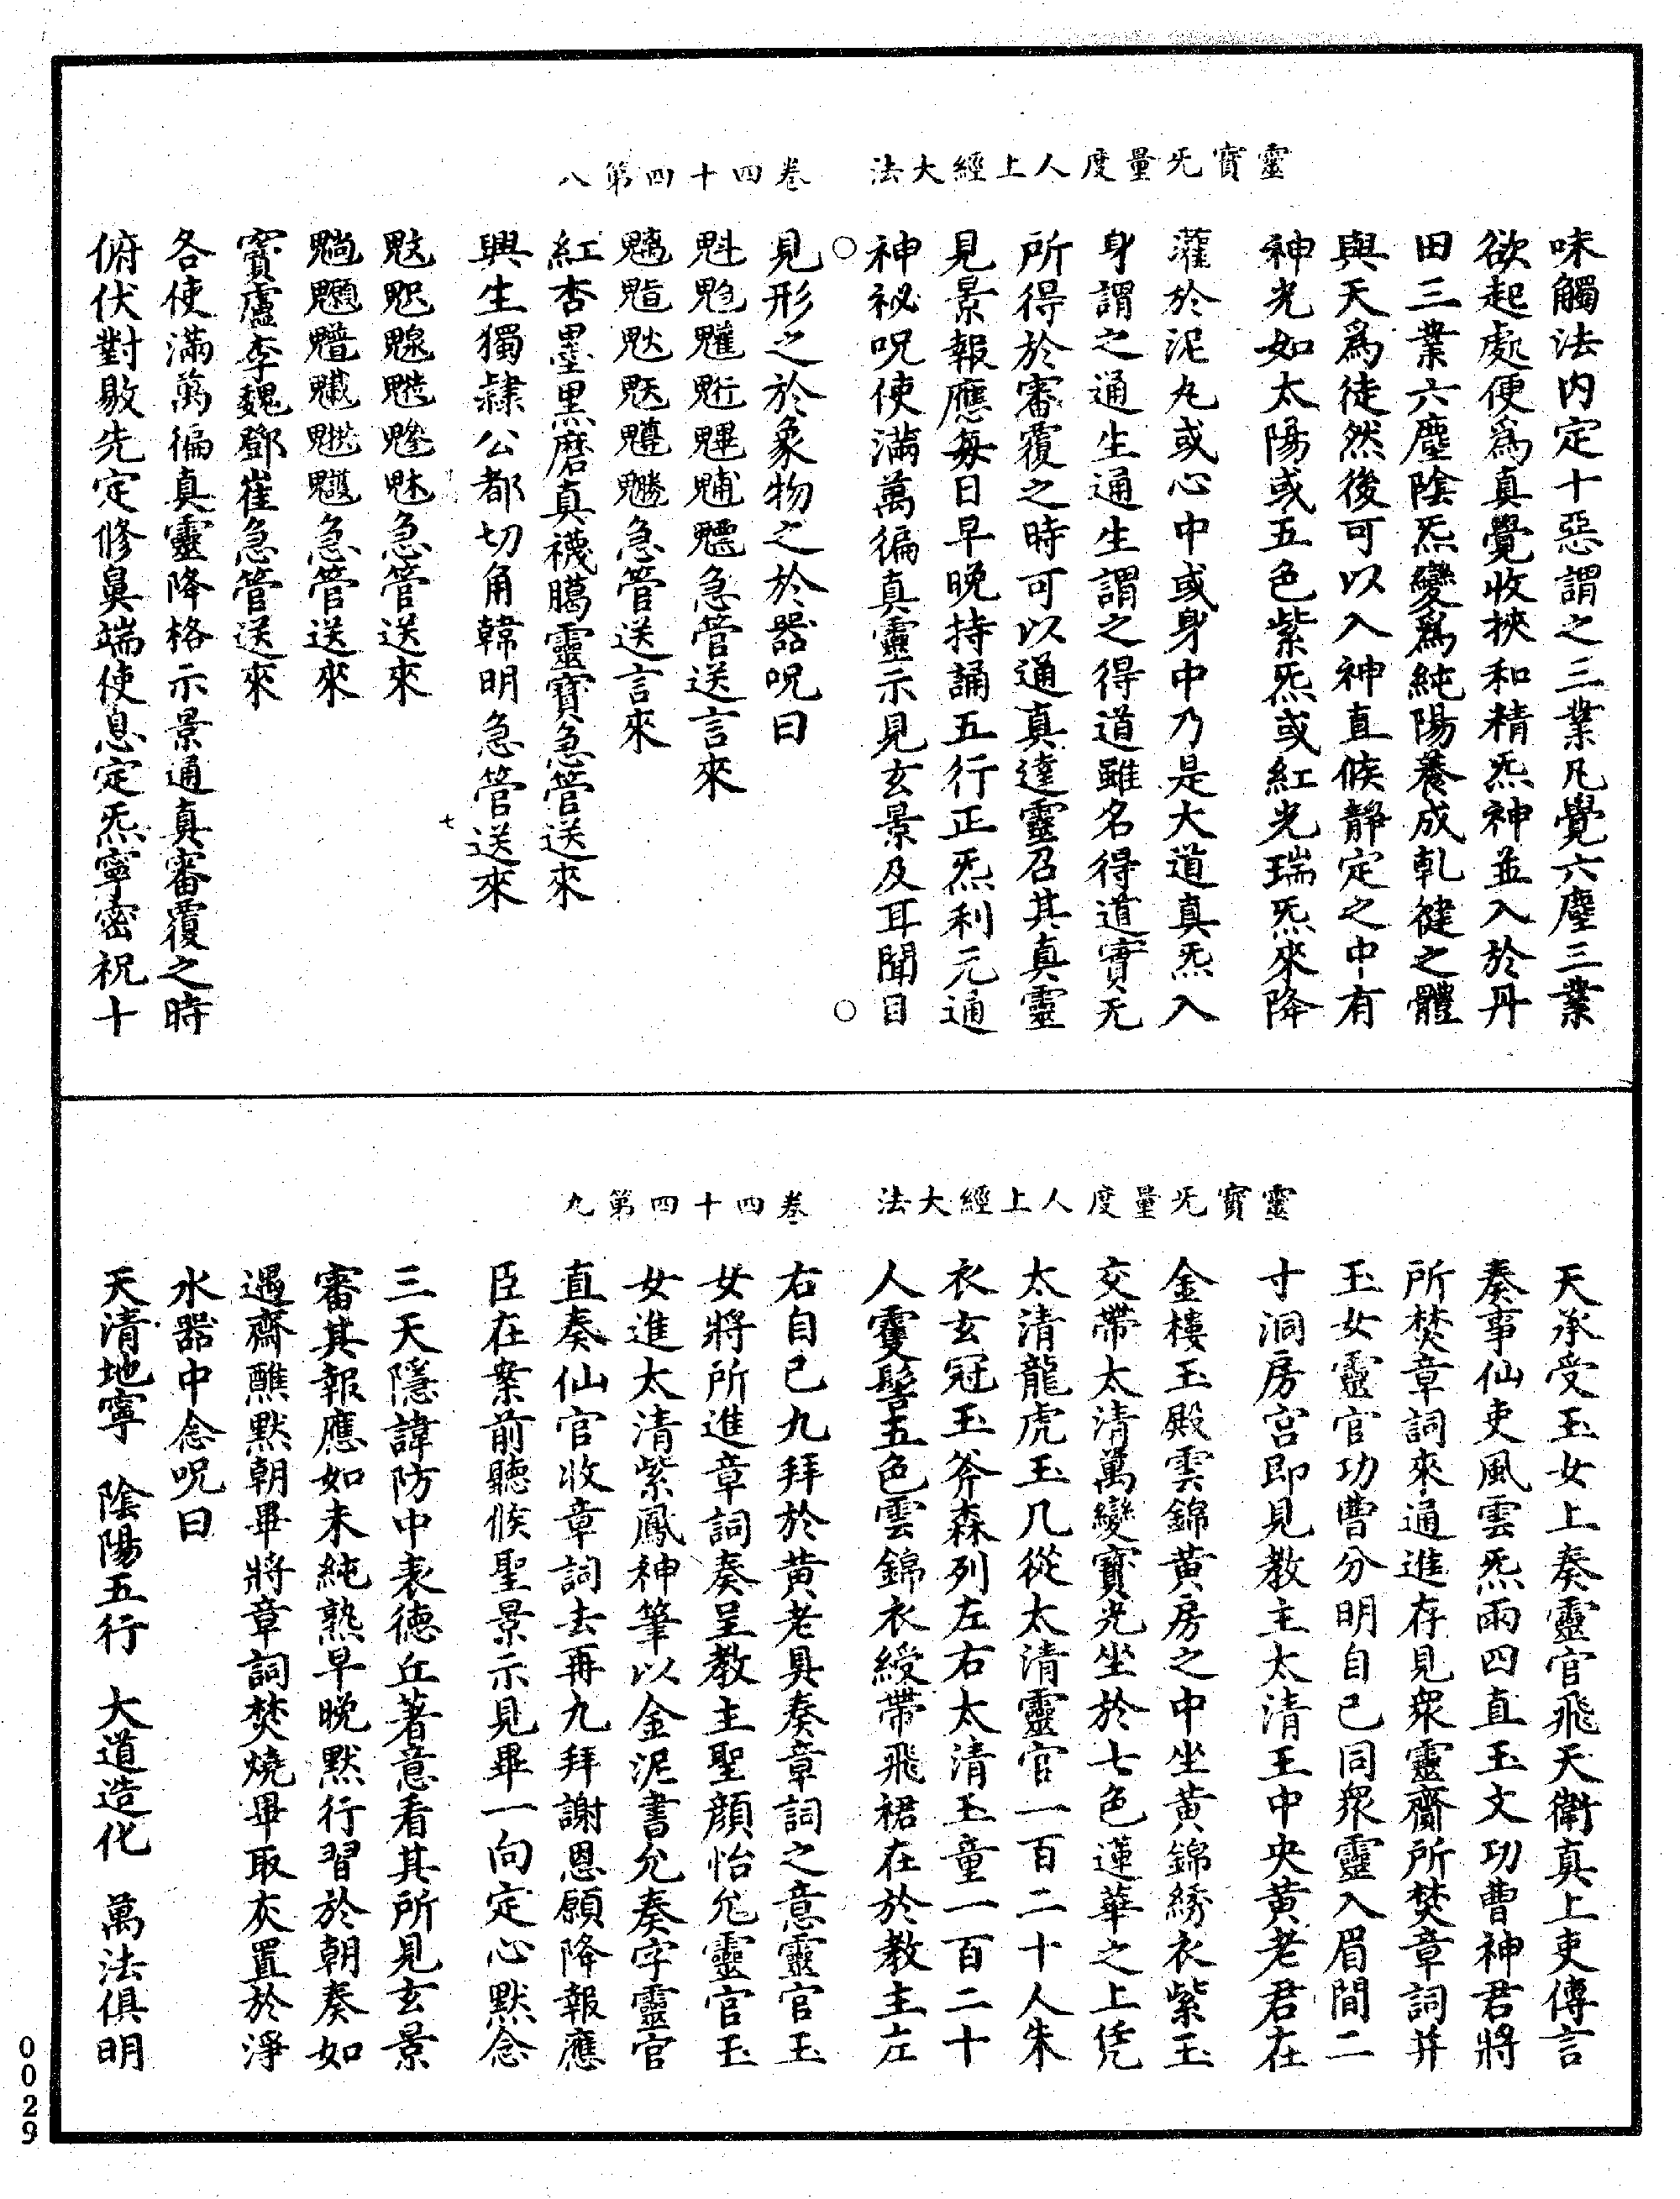 靈寶旡量度人上經大法　卷四十四第八
味觸法内定十惡謂之三業凡覺六塵三業
欲起處便爲真覺收挾和精炁神並入於丹
田三業六塵陰炁變爲純陽養成乹健之體
與天爲徒然後可以入神直候靜定之中有
神光如太陽或五色紫炁或紅光瑞炁來降
灌於泥丸或心中或身中乃是大道真炁入
身謂之通生通生謂之得道雖名得道實旡
所得於審覆之時可以通真達靈召其真靈
見景報應每日早晚持誦五行正炁利元通
神祕呪使滿萬徧真靈示見玄景及耳聞目
見形之於象物之於器呪曰
急管送言來
急管送言來
紅杏墨黑磨真襪臈靈寶急管送來
興生獨隸公都切角韓明急管送來
急管送來
急管送來
竇盧李魏鄧崔急管送來
各使滿萬徧真靈降格示景通真審覆之時
俯伏對敭先定修鼻端使息定炁寧密祝十
七
靈寶旡量度人上經大法　卷四十四第九
天承受玉女上奏靈官飛天衛真上吏傳言
奏事仙吏風雲炁雨四直玉文功曹神君將
所焚章詞來通進存見衆靈齎所焚章詞并
玉女靈官功曹分明自己同衆靈入眉間二
寸洞房宫即見教主太清王中央黄老君在
金樓玉殿雲錦黄房之中坐黄錦綉衣紫玉
交帶太清萬變寶光坐於七色蓮華之上凭
太清龍虎玉几從太清靈官一百二十人朱
衣玄冠玉斧森列左右太清玉童一百二十
人雙髻五色雲錦衣綬帶飛裙在於教主左
右自己九拜於黄老具奏章詞之意靈官玉
女將所進章詞奏呈教主聖顔怡允靈官玉
女進太清紫鳳神筆以金泥書允奏字靈官
直奏仙官收章詞去再九拜謝恩願降報應
臣在案前聽候聖景示見畢一向定心默念
三天隱諱防中表德丘著意看其所見玄景
審其報應如未純熟早晚默行習於朝奏如
遇齋醮默朝畢將章詞焚燒畢取灰置於淨
水器中念呪曰
天清地寧　陰陽五行　大道造化　萬法俱明
0029